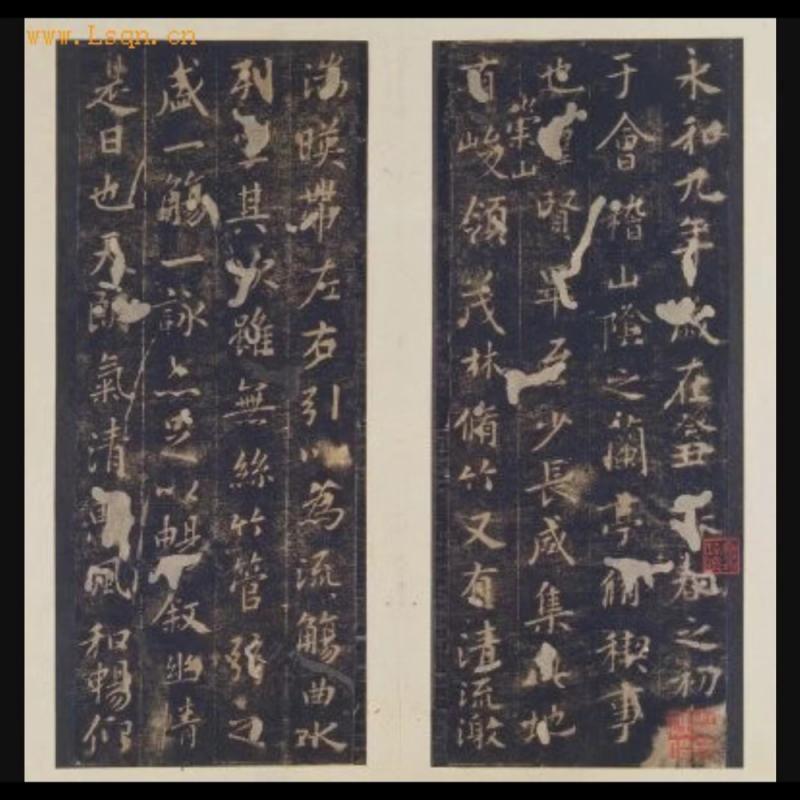 永和九年歲在癸丑暮之初
于會稽山陰之蘭亭脩稧事
也群賢畢至少長咸集此地
崇山
有峻領茂林脩竹又有清流激
湍暎帶左右引以為流觴曲水
列坐其次雖無絲竹管弦之
盛一觴一詠亦足以暢叙幽情
是日也天朗氣清惠風和暢仰
www.Lsqn.cn